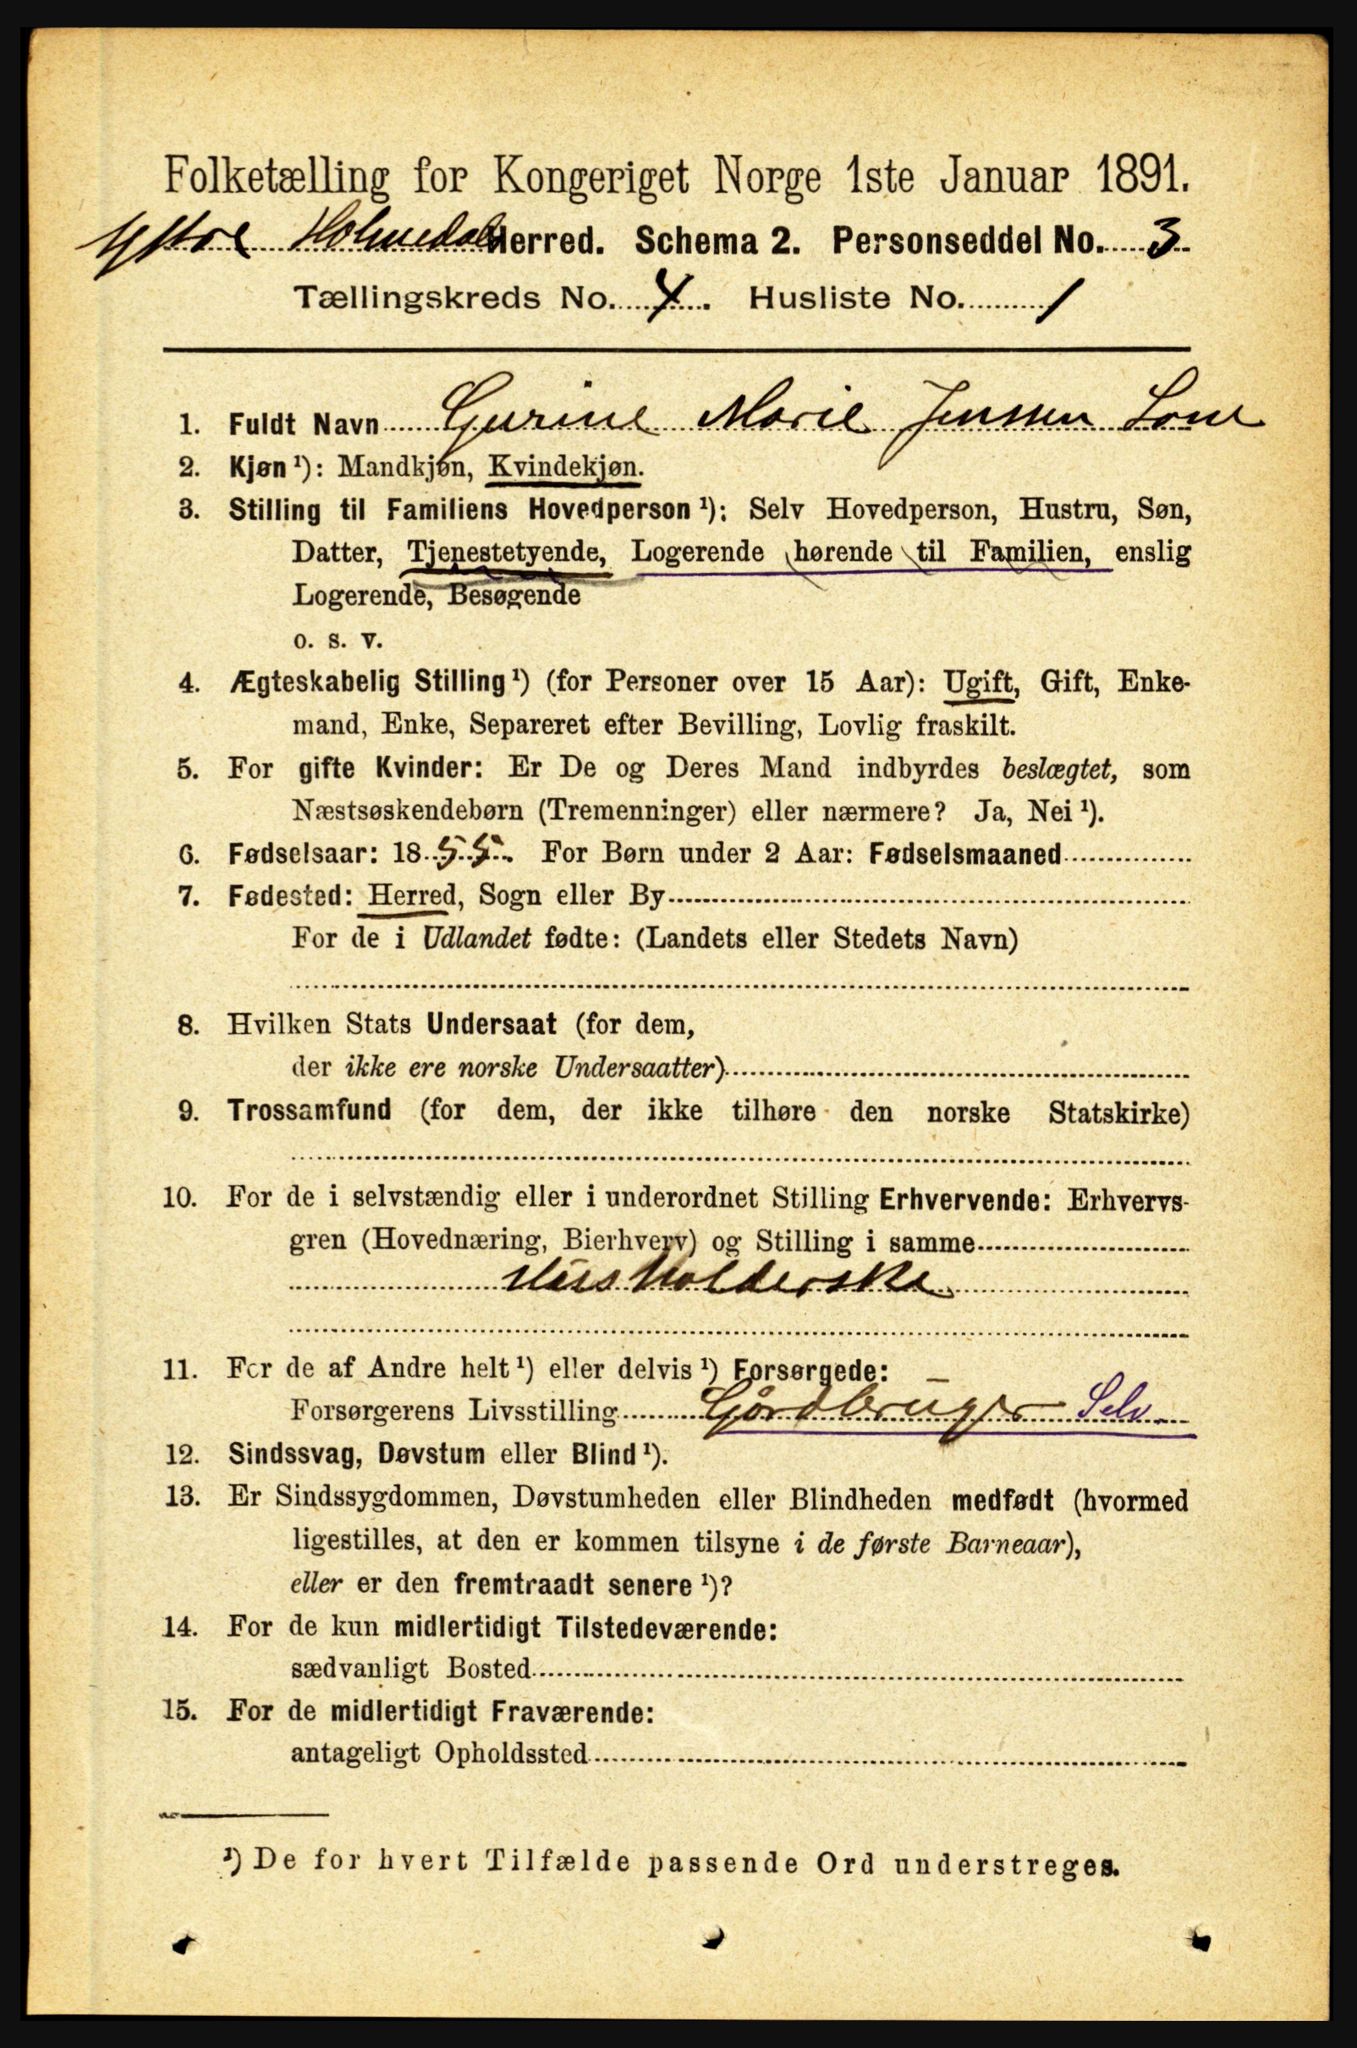 Folketælling for Kongeriget Norge 1ste Januar 1891.
Ytre Holmedals Herred. Schema 2. Personseddel No. 3
Tællingskreds No. 4. Husliste No. 1
1. Fuldt Navn Gurine Marie Jenssen Sone
2. Kjøn ¹): Mandkjøn, Kvindekjøn.
3. Stilling til Familiens Hovedperson ¹): Selv Hovedperson, Hustru, Søn,
Datter, Tjenestetyende, Logerende hørende til Familien, enslig
Logerende, Besøgende
o. s. v.
4. Ægteskabelig Stilling ¹) (for Personer over 15 Aar): Ugift, Gift, Enke-
mand, Enke, Separeret efter Bevilling, Lovlig fraskilt.
5. For gifte Kvinder: Er De og Deres Mand indbyrdes beslægtet, som
Næstsøskendebørn (Tremenninger) eller nærmere? Ja, Nei ¹).
6. Fødselsaar: 1855. For Børn under 2 Aar: Fødselsmaaned
7. Fødested: Herred, Sogn eller By
For de i Udlandet fødte: (Landets eller Stedets Navn)
8. Hvilken Stats Undersaat (for dem,
der ikke ere norske Undersaatter)
9. Trossamfund (for dem, der ikke tilhøre den norske Statskirke)
10. For de i selvstændig eller i underordnet Stilling Erhvervende: Erhvervs-
gren (Hovednæring, Bierhverv) og Stilling i samme
Husholderske
11. For de af Andre helt ¹) eller delvis ¹) Forsørgede:
Forsørgerens Livsstilling Gårdbruger Selv
12. Sindssvag, Døvstum eller Blind ¹).
13. Er Sindssygdommen, Døvstumheden eller Blindheden medfødt (hvormed
ligestilles, at den er kommen tilsyne i de første Barneaar),
eller er den fremtraadt senere ¹)?
14. For de kun midlertidigt Tilstedeværende:
sædvanligt Bosted
15. For de midlertidigt Fraværende:
antageligt Opholdssted
¹) De for hvert Tilfælde passende Ord understreges.